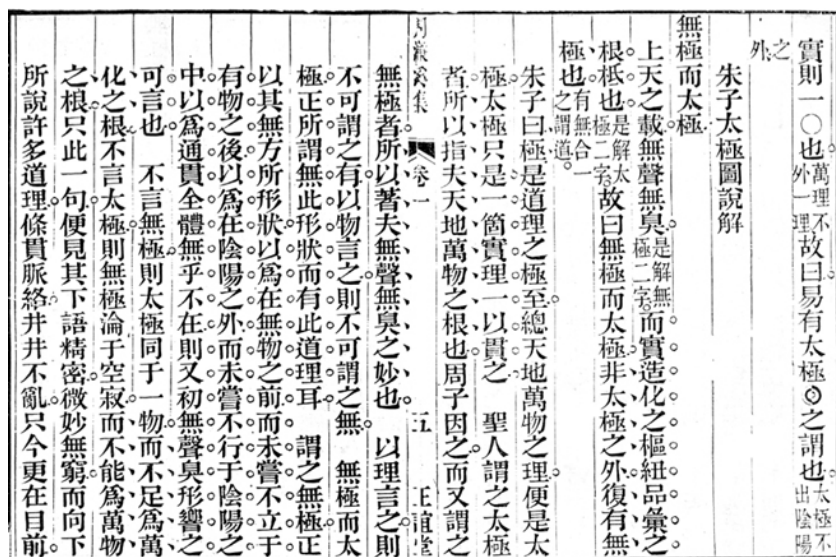 實則一〇也萬理不外一理故曰易有太極◎之謂也太極不出陰陽
之外
朱子太極圖說解
無極而太極
上天之載無聲無臭是解無極二字而實造化之樞紐品彙之
根柢也是解太極二字故曰無極而太極非太極之外復有無
極也有無合一之謂道
朱子曰極是道理之極至總天地萬物之理便是太
極太極只是一箇實理一以貫之　聖人謂之太極
者所以指夫天地萬物之根也周子因之而又謂之
周濂溪集　卷一　五　正誼堂
無極者所以著夫無聲無臭之妙也　以理言之則
不可謂之有以物言之則不可謂之無　無極而太
極正所謂無此形狀而有此道理耳　謂之無極正
以其無方所形狀以爲在無物之前而未嘗不立于
有物之後以爲在陰陽之外而未嘗不行于陰陽之
中以爲通貫全體無乎不在則又初無聲臭形響之
可言也　不言無極則太極同于一物而不足爲萬
化之根不言太極則無極淪于空寂而不能爲萬物
之根只此一句便見其下語精密微妙無窮而向下
所說許多道理條貫脈絡井井不亂只今更在目前